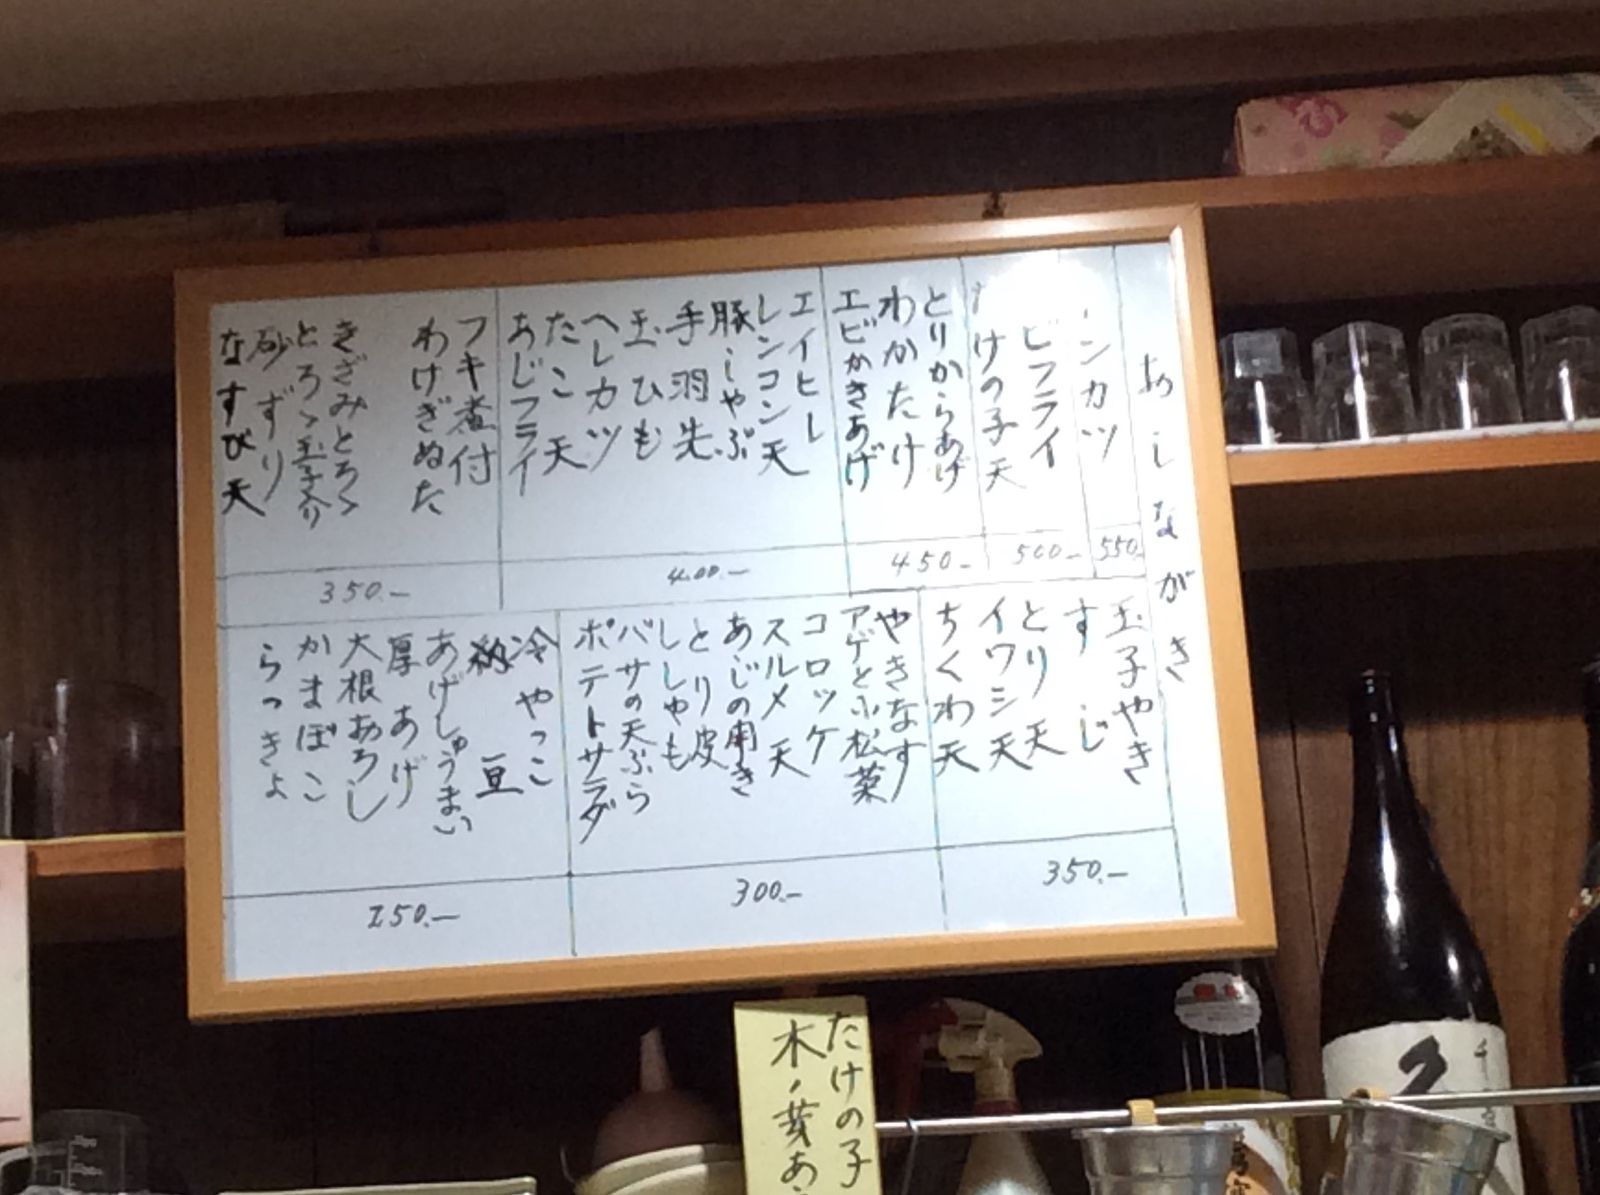 おしながき
ンカツ
550.
ビフライ
けの子天
500.-
とりからあげ
わかたけ
エビかきあげ
450.-
エイヒレ
レンコン天
豚しゃぶ
手羽先
玉ひも
ヘレカツ
たこ天
あじフライ
400.-
フキ煮付
わけぎぬた
きざみとろゝ
とろゝ玉子入り
砂ずり
なすび天
350.-
玉子やき
すじ
とり天
イワシ天
ちくわ天
350.-
やきなす
アゲと小松菜
コロッケ
スルメ天
あじの開き
とり皮
ししゃも
バサの天ぷら
ポテトサラダ
300.-
冷やっこ
納豆
あげしゅうまい
厚あげ
大根おろし
かまぼこ
らっきょ
250.-
たけの子
木ノ芽あ